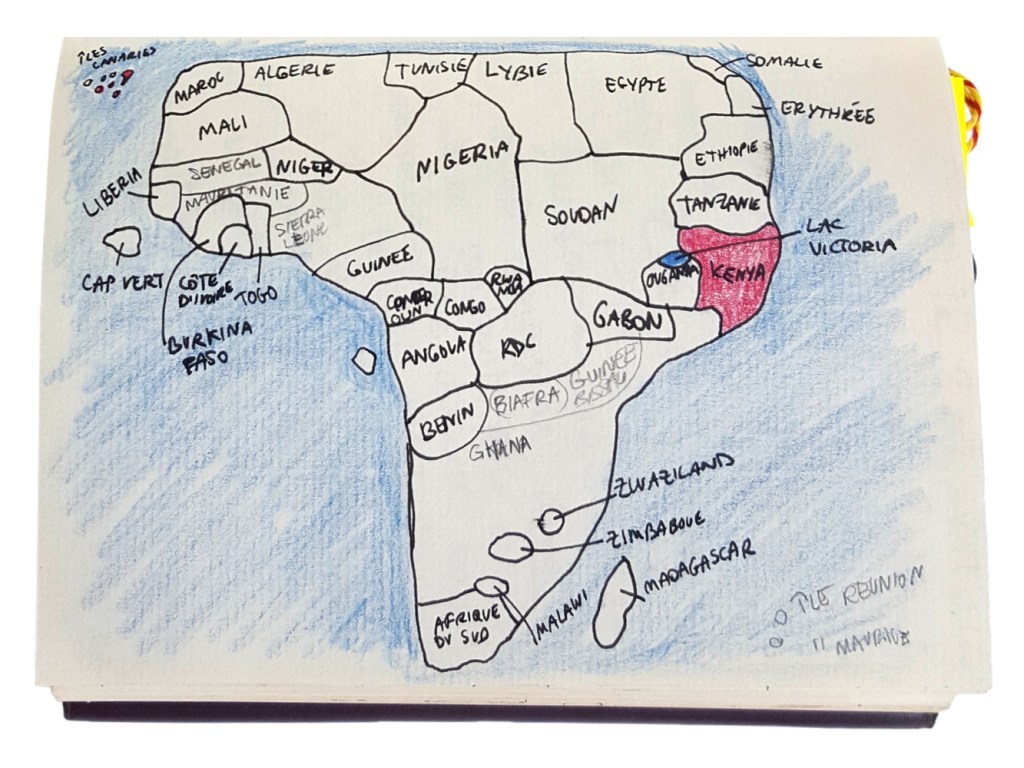 ÎLES
CANARIES
MAROC
ALGERIE
TUNISIE
LYBIE
EGYPTE
SOMALIE
ERYTHRÉE
MALI
NIGERIA
ETHIOPIE
SENEGAL
NIGER
LIBERIA
MAURITANIE
SIERRA
LEONE
SOUDAN
TANZANIE
LAC
VICTORIA
CAP VERT
CÔTE
D'IVOIRE
TOGO
GUINEE
RWA
NDA
OUGANDA
KENYA
BURKINA
FASO
CAMER
OUN
CONGO
GABON
ANGOLA
RDC
GUINEE
BISSAU
BIAFRA
BENIN
GHANA
ZWAZILAND
ZIMBABOUE
MADAGASCAR
MALAWI
AFRIQUE
DU SUD
ÎLE REUNION
" MAURICE